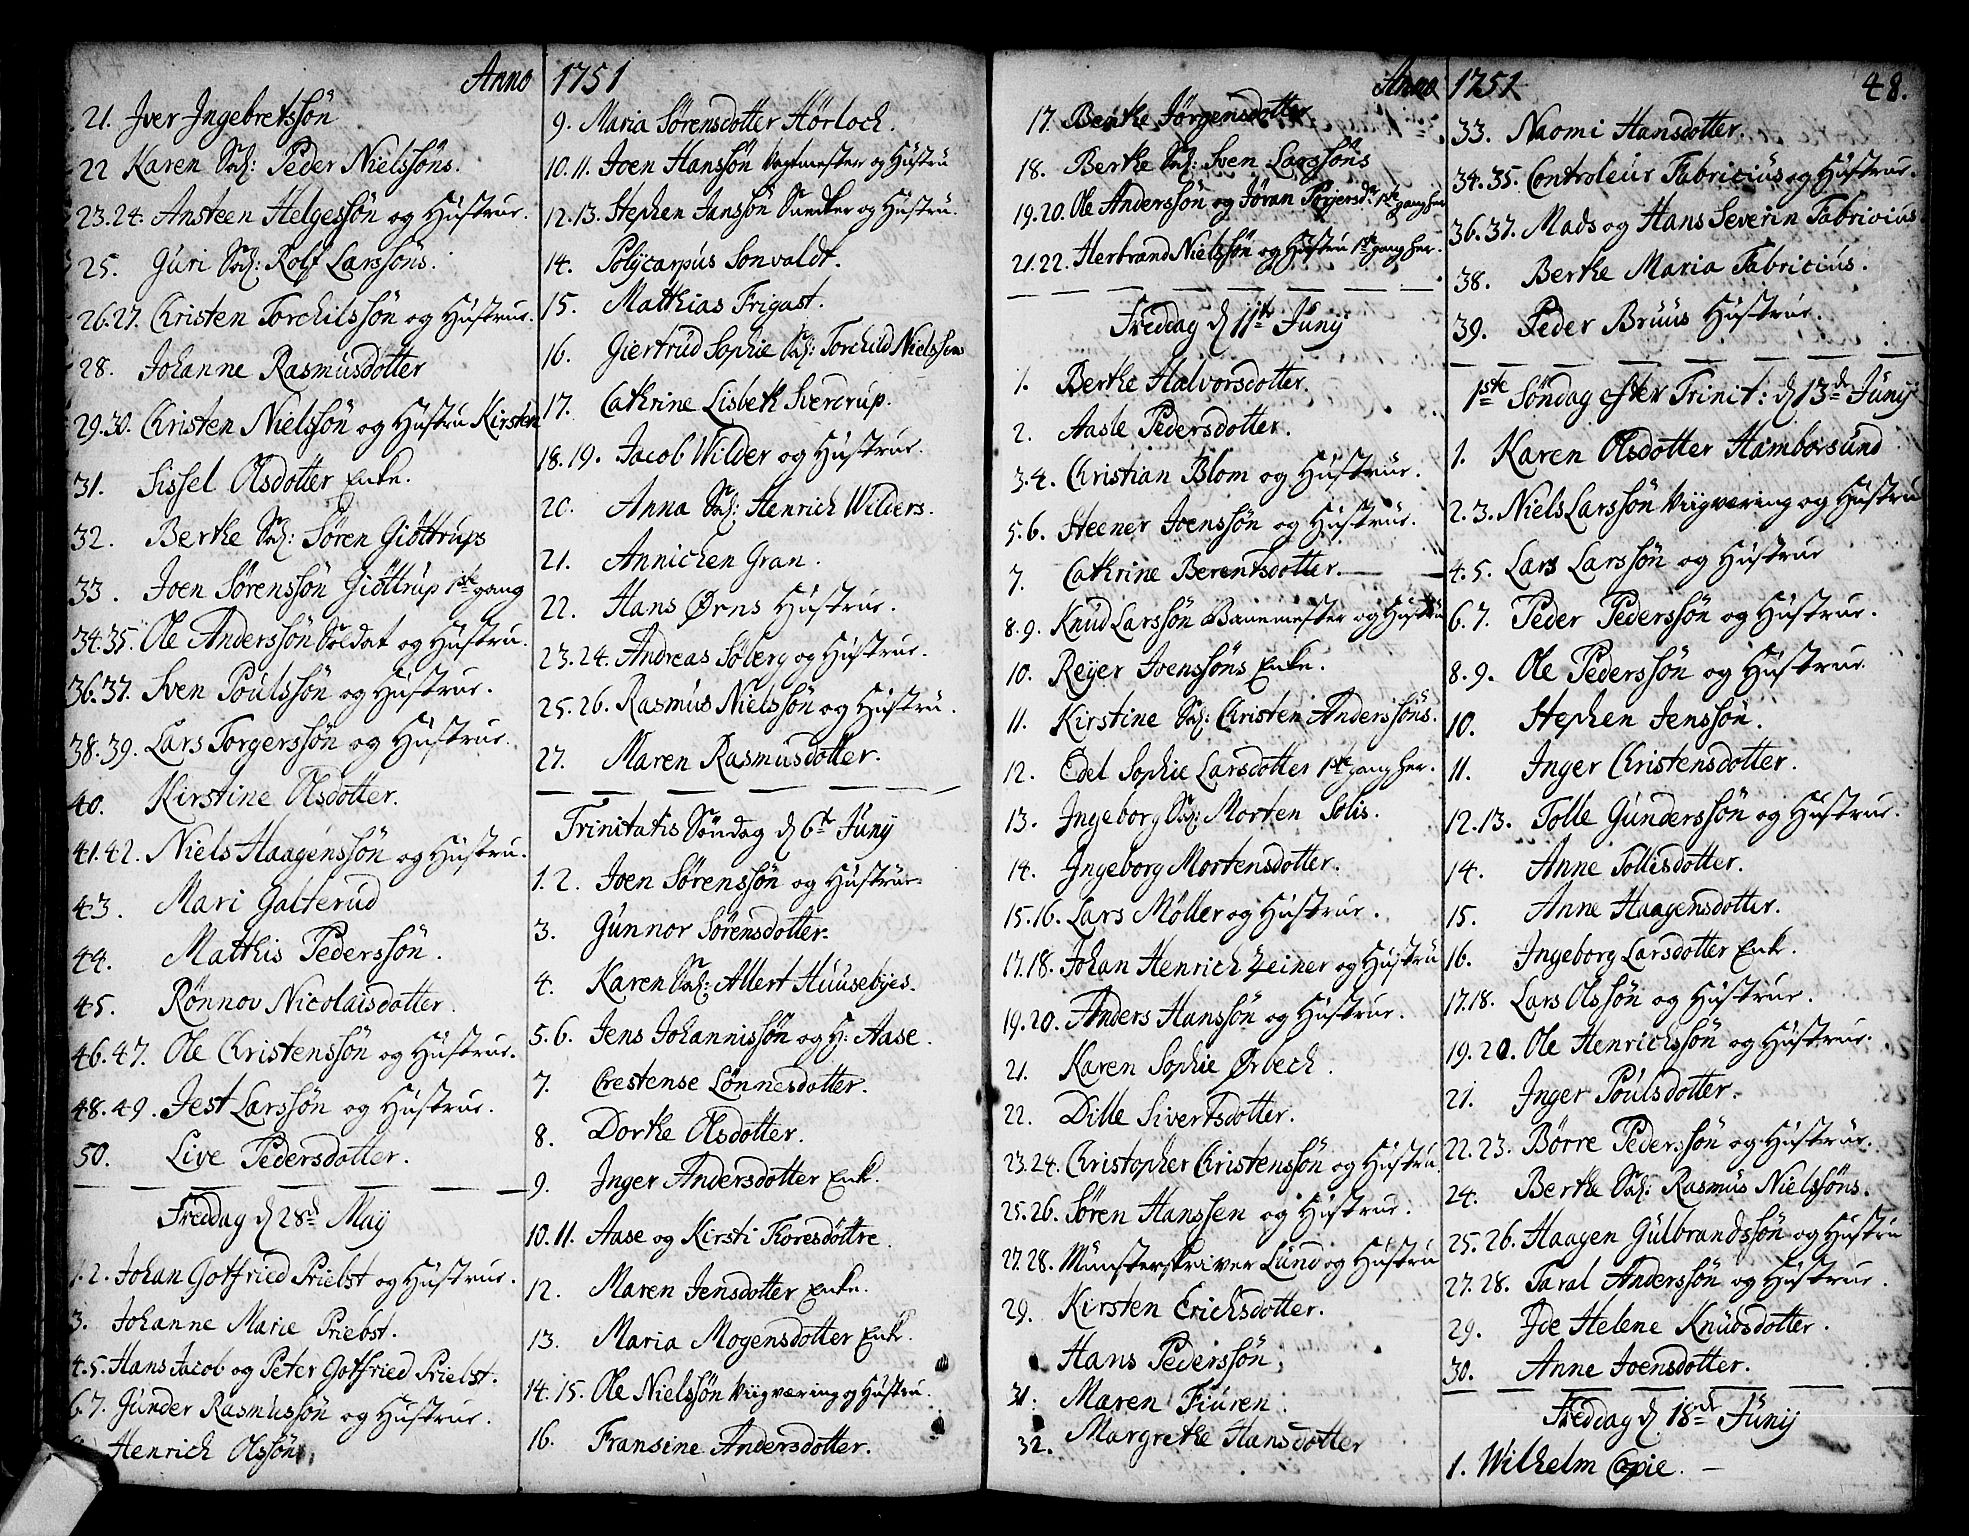 Anno 1751
21. Iver Ingebretssön
22 Karen Sal: Peder Nielssöns.
23.24. Ansteen Helgessön og Hustrue.
25. Guri Sal: Rolf Larssöns.
26.27. Christen Torchilssön og Hustrue.
28. Johanne Rasmusdotter
29.30. Christen Nielssön og Hustru Kirsten
31. Sissel Olsdotter Enke.
32. Berthe Sal: Sören Giöttrups
33. Joen Sörenssön Giöttrup 1ste gang
34.35. Ole Anderssön Soldat og Hustru.
36.37. Sven Poulssön og Hustrue.
38.39. Lars Torgerssön og Hustrue.
40. Kirstine Olsdotter.
41.42. Niels Haagenssön og Hustru.
43. Mari Galterud
44. Matthis Pederssön.
45. Rönnov Nicolaisdatter.
46.47. Ole Christenssön og Hustrue.
48.49. Jest Larssön og Hustrue.
50. Live Pedersdatter.
Fredag d 28de Maij
1.2. Johan Gotfried Priebst og Hustrue.
3. Johanne Marie Priebst.
4.5. Hans Jacob og Peter Gotfried Priebst.
6.7. Gunder Rasmussön og Hustrue.
Henrich Olssön
9. Maria Sörensdotter Hörloch.
10.11. Joen Hanssön Vagtmester og Hustru
12.13. Stephen Janssön Snedker og Hustru.
14. Polycarpus Sonvaldt.
15. Matthias Frigast.
16. Giertrud Sophie Sal: Torchild Nielssöns
17. Cathrine Lisbeth Sverdrup.
18.19. Jacob Wilder og Hustrue.
20. Anna Sal: Henrich Wilders.
21. Annichen Gran.
22. Hans Ørns Hustrue.
23.24. Andreas Söberg og Hustrue.
25.26. Rasmus Nielssön og Hustru.
27. Maren Rasmusdotter.
Trinitatis Söndag d 6te Juny
1.2. Joen Sörenssön og Hustrue
3. Gunnor Sörensdotter
4. Karen Sal: Allert Huusebyes.
5.6. Jens Johannissön og H: Aase.
7. Crestense Lönnesdatter.
8. Dorthe Olsdotter.
9. Inger Andersdotter Enk.
10.11. Aase og Kirsti Toresdöttre.
12. Maren Jensdotter Enke.
13. Maria Mogensdotter Enk.
14.15. Ole Nielssön Viigværing og Hustru.
16. Fransine Andersdotter.
Anno 1751 48.
17. Berthe Jörgensdotter
18. Berthe Sal: Sven Larssöns
19.20. Ole Anderssön og Jöran Torgersdr 1ste gang her
21.22. Herbrand Nielssön og Hustru 1ste gang her.
Freddag d 11te Junij
1. Berthe Halvorsdotter.
2. Aasle Pedersdotter.
3.4. Christian Blom og Hustrue.
5.6. Steener Joenssön og Hustrue.
7. Cathrine Berentsdotter.
8.9. Knud Larssön Banemester og Hustru
10. Reyer Joenssöns Enke.
11. Kirstine Sal: Christen Anderssöns.
12. Edel Sophie Larsdotter 1ste gang her.
13. Ingeborg Sal: Morten Solis.
14. Ingeborg Mortensdotter.
15.16. Lars Möller og Hustrue.
17.18. Johan Henrich Zeiner og Hustru
19.20. Anders Hanssön og Hustrue.
21. Karen Sophie Ørbech.
22. Dille Sivertsdotter.
23.24. Christopher Christenssön og Hustru
25.26. Sören Hanssen og Hustrue.
27.28. Mynsterskriver Lund og Hustru
29. Kirsten Erichsdotter.
Hans Pederssön.
31. Maren Fiuren.
32. Margrethe Hansdotter
33. Naomi Hansdotter.
34.35. Controleur Fabricius og Hustrue.
36.37. Mads og Hans Severin Fabricius
38. Berthe Maria Fabricius.
39. Peder Bruus Hustrue.
1ste Söndag efter Trinit: d 13de Junij
1. Karen Olsdotter Hamborsund
2.3. Niels Larssön Viigværing og Hustru
4.5. Lars Larssön og Hustrue
6.7. Peder Pederssön og Hustrue.
8.9. Ole Pederssön og Hustrue
10. Stephen Jenssön.
11. Inger Christensdotter.
12.13. Tolle Gunderssön og Hustrue.
14. Anne Tollisdotter.
15. Anne Haagensdotter.
16. Ingeborg Larsdotter Enk.
17.18. Lars Olssön og Hustrue.
19.20. Ole Henrichssön og Hustrue.
21. Inger Poulsdotter.
22.23. Börre Pederssön og Hustrue.
24. Berthe Sal: Rasmus Nielssöns.
25.26. Haagen Gulbrandssön og Hustru
27.28. Taral Anderssön og Hustrue.
29. Ide Helene Knudsdotter.
30. Anne Joensdotter.
Freddag d. 18de Junij
1. Wilhelm Copie.